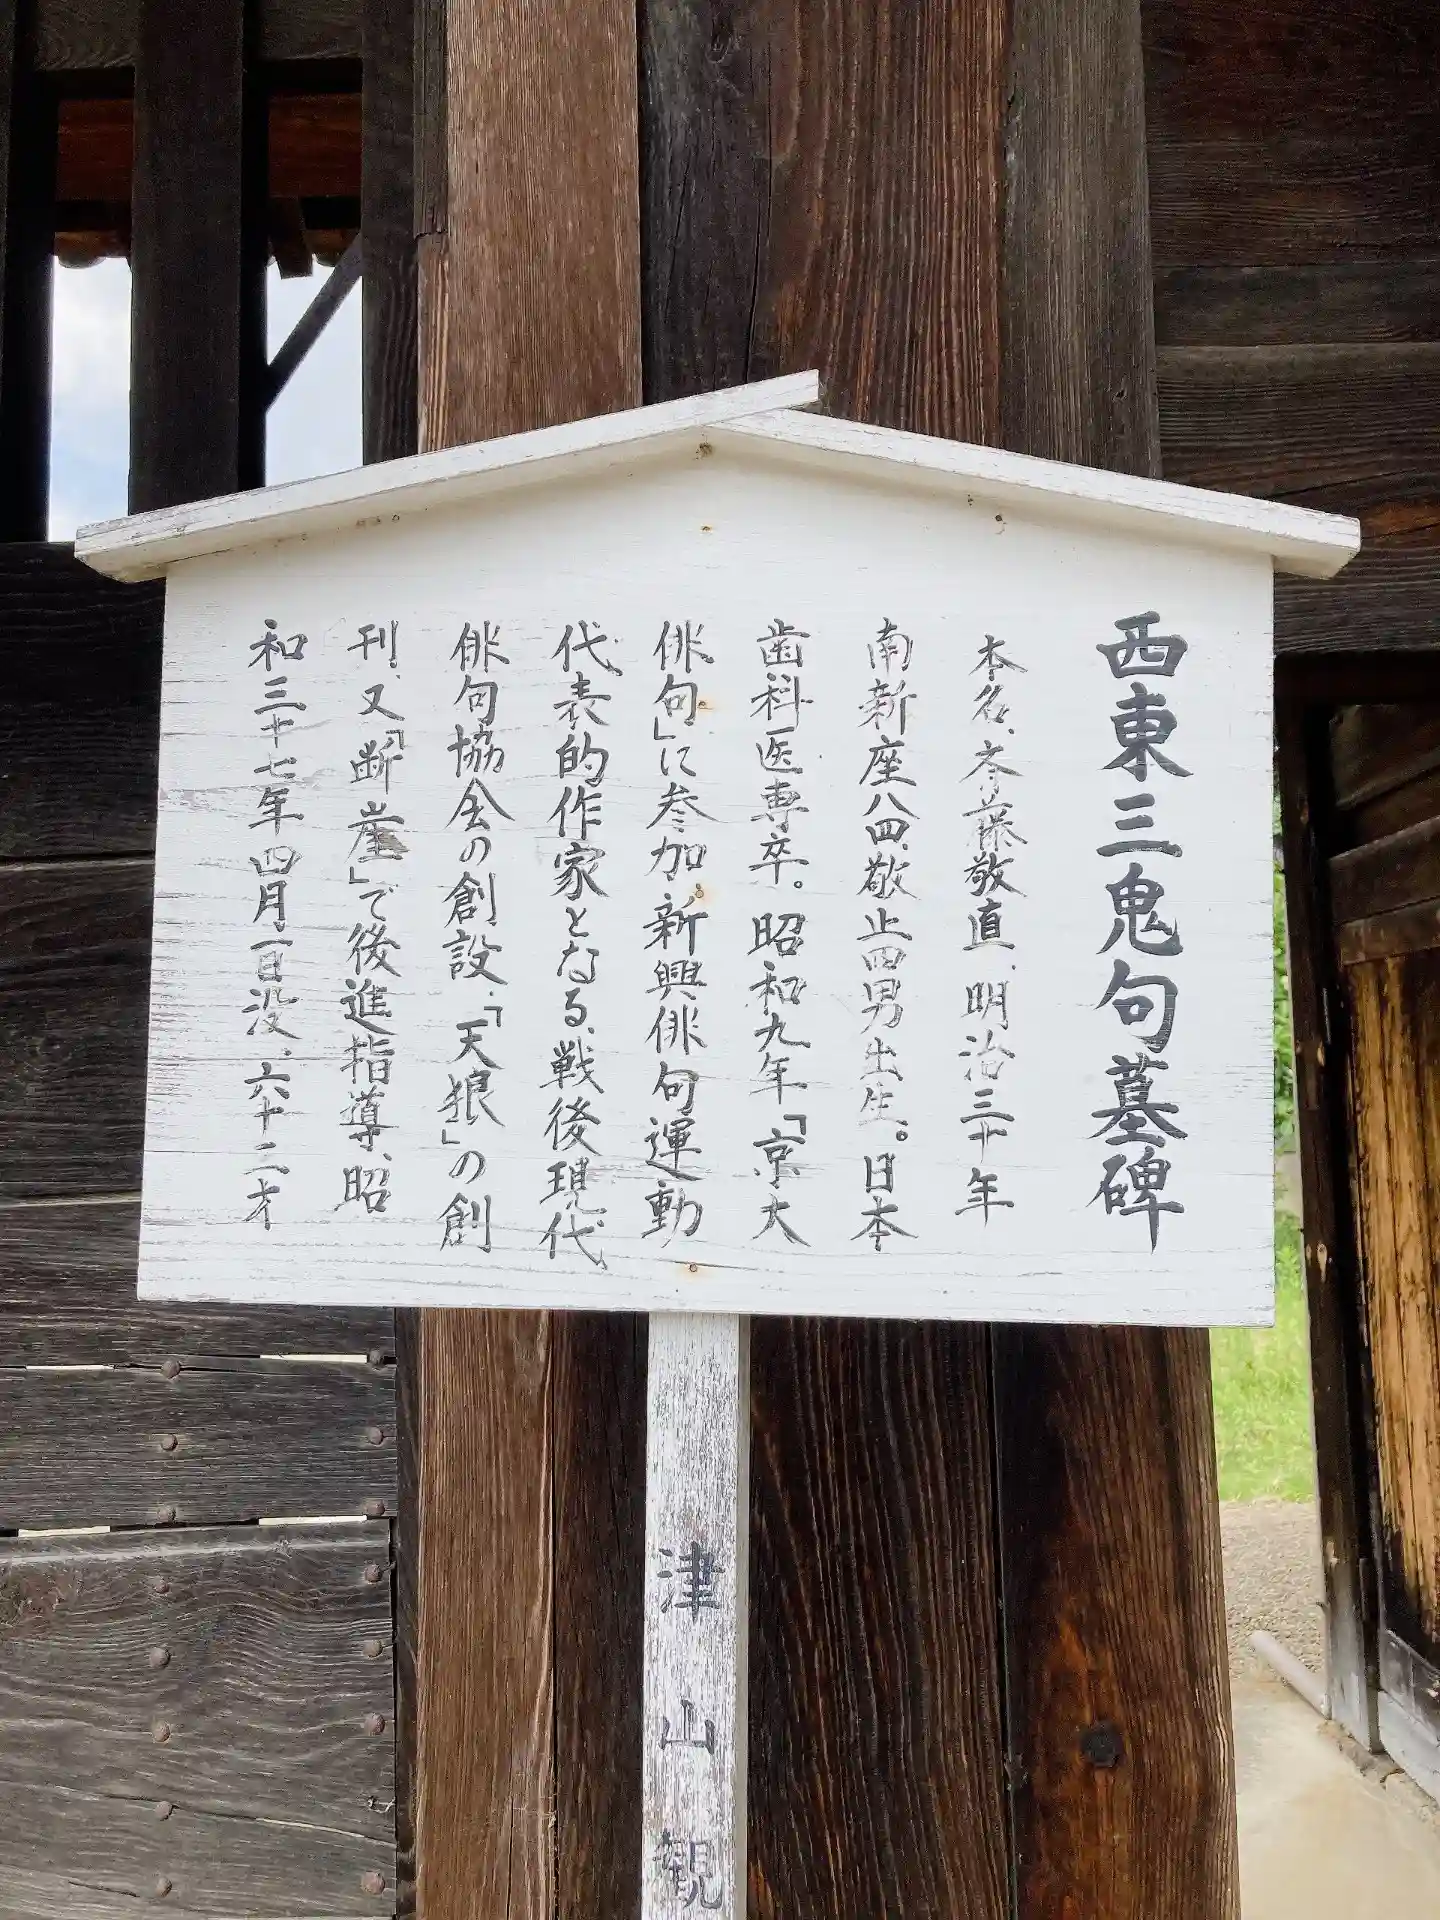 西東三鬼句墓碑
本名、斉藤敬直、明治三十年
南新座八四、敬止四男出生。日本
歯科医専卒。昭和九年「京大
俳句」に参加。新興俳句運動
代表的作家となる、戦後現代
俳句協会の創設、「天狼」の創
刊、又「断崖」で後進指導、昭
和三十七年四月一日没、六十二才
津山観